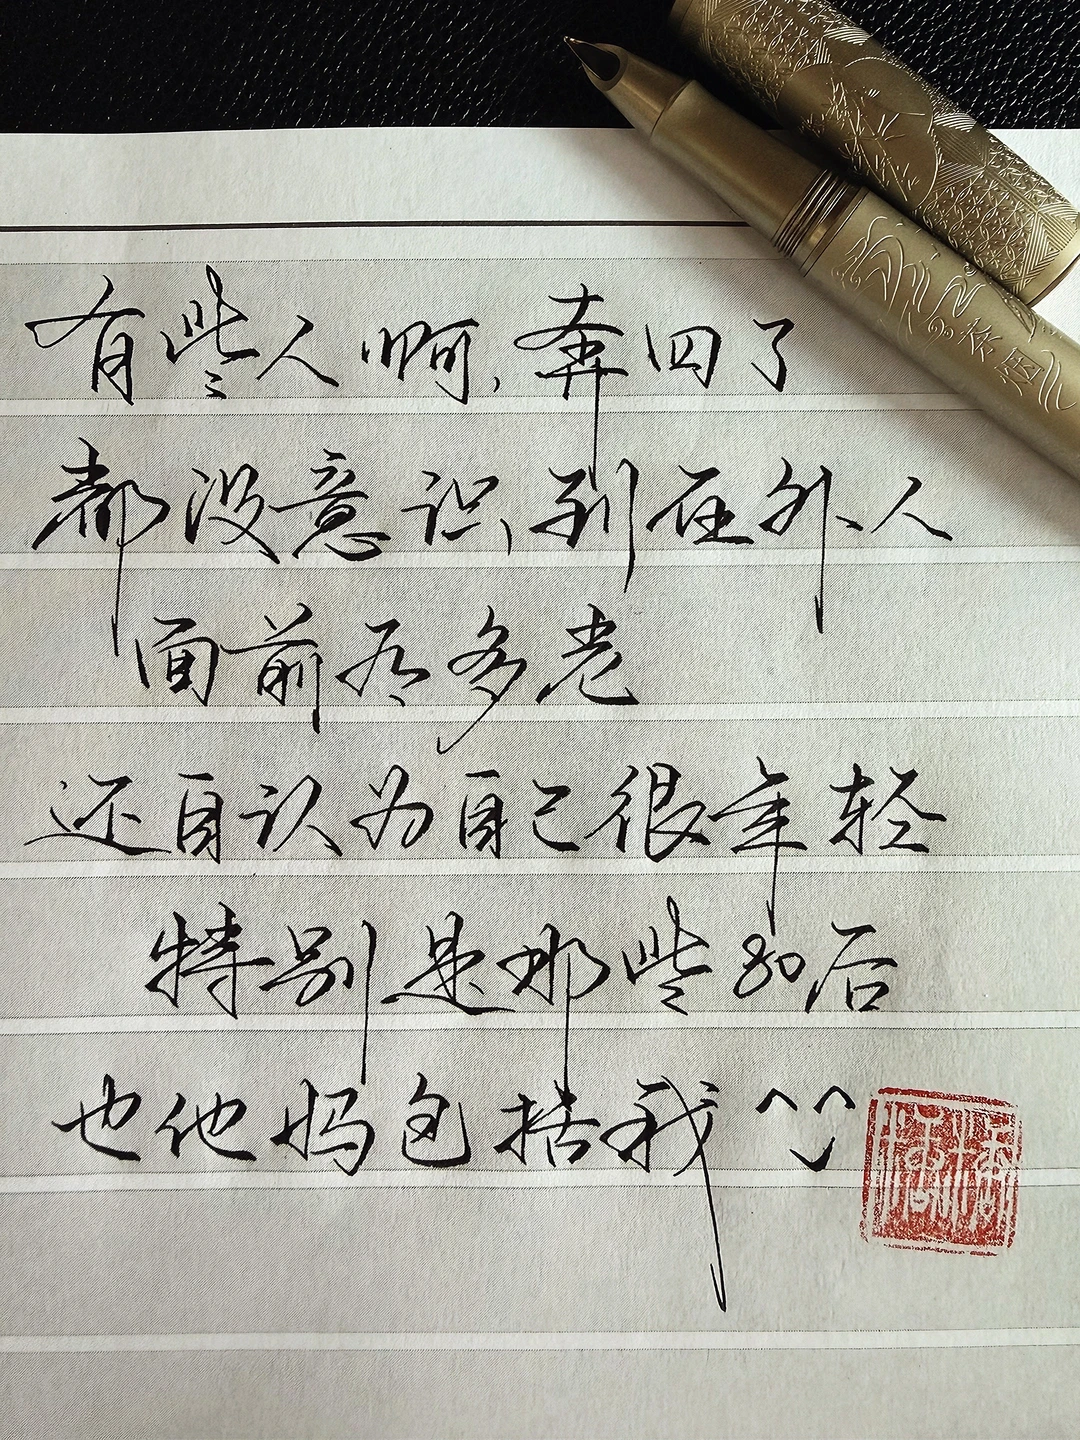 有些人啊,奔四了
都没意识到在外人
面前有多老
还自认为自己很年轻
特别是那些80后
也他妈包括我^^